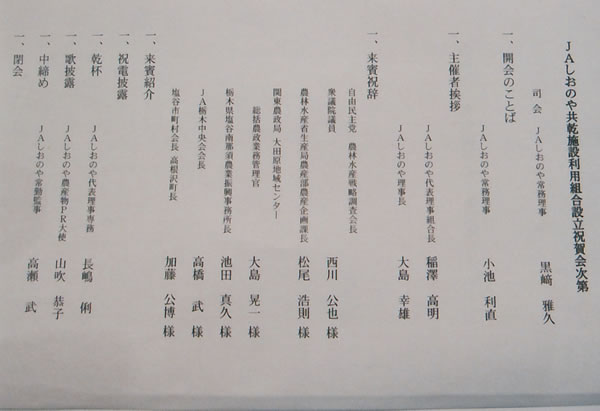 JAしおのや共乾施設利用組合設立祝賀会次第
司会 JAしおのや常務理事 黒﨑 雅久
一、開会のことば
JAしおのや常務理事 小池 利直
一、主催者挨拶
JAしおのや代表理事組合長 稲澤 高明
JAしおのや理事長 大島 幸雄
一、来賓祝辞
自由民主党 農林水産戦略調査会長
衆議院議員 西川 公也 様
農林水産省生産局農産部農産企画課長 松尾 浩則 様
関東農政局 大田原地域センター
総括農政業務管理官 大島 晃一 様
栃木県塩谷南那須農業振興事務所長 池田 真久 様
JA栃木中央会会長 高橋 武 様
塩谷市町村会長 高根沢町長 加藤 公博 様
一、来賓紹介
一、祝電披露
一、乾杯 JAしおのや代表理事専務 長嶋 俐
一、歌披露 JAしおのや農産物PR大使 山吹 恭子
一、中締め JAしおのや常勤監事 高瀬 武
一、閉会